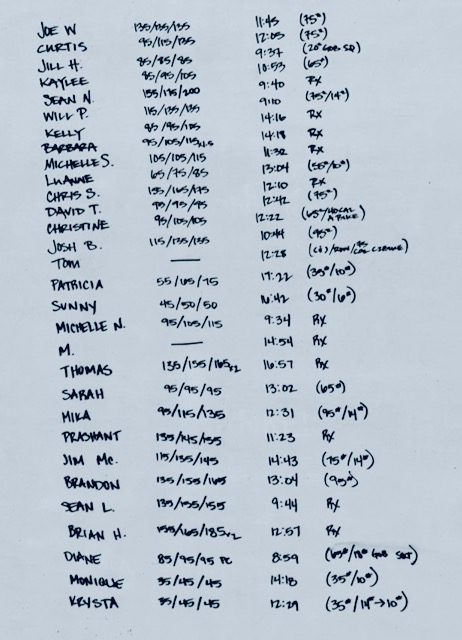 JOE W 135/135/135 11:45 (75#)
CURTIS 95/115/135 12:05 (75#)
JILL H. 85/85/85 9:37
KAYLEE 85/95/105 10:53 (65#)
SEAN N. 155/175/200 9:40 RX
WILL P. 115/135/135 9:10 (75#/14#)
KELLY 85/95/105 14:16 RX
BARBARA 95/105/115 14:18 RX
MICHELLE S. 105/105/115 11:32 RX
LUANNE 65/75/85 13:04 (55#/10#)
CHRIS S. 155/165/175 12:10 RX
DAVID T. 95/95/95 12:42 (75#)
CHRISTINE 95/105/105 12:22
JOSH B. 115/135/135 10:44 (95#)
TOM — 12:28
PATRICIA 55/65/75 17:22 (35#/10#)
SUNNY 45/50/50 16:42 (30#/6#)
MICHELLE N. 95/105/115 9:34 RX
M. — 14:54 RX
THOMAS 135/155/165x2 16:57 RX
SARAH 95/95/95 13:02 (65#)
MIKA 95/115/135 12:31 (95#/14#)
PRASHANT 135/145/155 11:23 RX
JIM MC. 115/135/145 14:43 (75#/14#)
BRANDON 135/155/165 13:04 (95#)
SEAN L. 135/155/155 9:44 RX
BRIAN H. 155/165/185x2 12:57 RX
DIANE 85/95/95 PC 8:59
MONIQUE 35/45/45 14:18 (35#/10#)
KRYSTA 35/45/45 12:29 (35#/14#→10#)